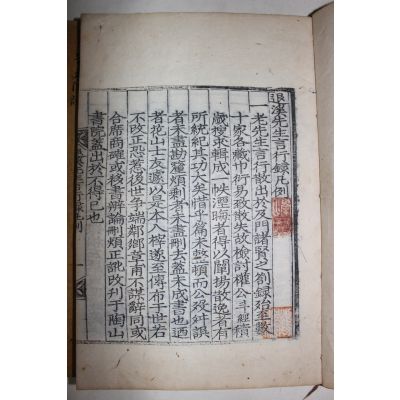 退溪先生言行錄凡例
一老先生言行散出於及門諸賢之劄錄殆至數
十家各藏巾衍易致散失故檢討權公斗經積
歲搜求輯成一帙湮晦者得以闡揚散逸者有
所統紀其功大矣惜乎篇未整頓而公歿紕誤
者未盡勘釐煩剩者未盡刪去蓋未成書也迺
者花山士友遽以吳本入梓遂至傳布一世若
不改正恐惹後世爭端鄰鄉章甫不謀辭同或
合席商確或移書辨論刪煩正訛改刊于陶山
書院蓋出於不得已也